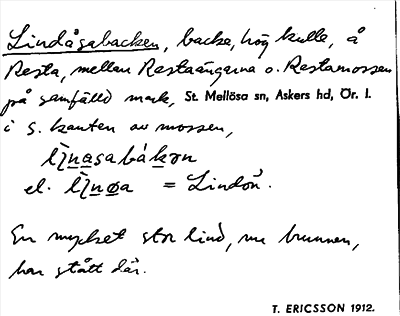 Lindåsabacken, backe, hög kulle, å
Resta, mellan Restaängarna o. Restamossen
på samfälld mark, St. Mellösa sn, Askers hd, Ör. l.
i s. kanten av mossen,
el. = Lindön.
En mycket stor lind, nu brunnen,
har stått där.
T. ERICSSON 1912.